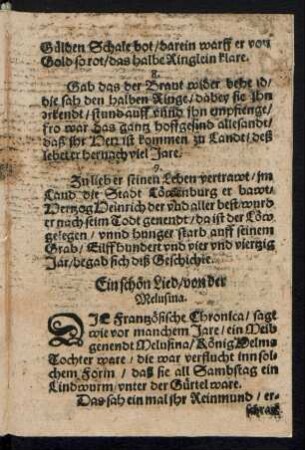 Gülden Schale bot/darein warff er von
Gold so rot/das halbe Ringlein klare.
8.
Gab das der Braut wider behend/
die sah den halben Ringe/dabey sie ihn
erkendt/stund auff vnnd ihn empfienge/
fro war das gantz hoffgesind allesandt/
daß ihr Herr ist kommen zu Landt/deß
lebet er hernach viel Jare.
9.
Zu lieb er seinen Leben vertrawt/im
Land die Stadt Löwenburg er bawt/
Hertzog Heinrich der vnd aller best/wurd
er nach seim Todt genendt/da ist der Löw
gelegen/vnnd hunger starb auff seinem
Grab/Eilff hundert vnd vier vnd viertzig
Jar/begab sich diß Geschichte.
Ein schön Lied/von der
Melusina.
DIE Frantzösische Chronica/sagt
wie vor manchem Jare/ein Weib
genendt Melusina/König Helmas
Tochter ware/die war verflucht inn sol-
chem Form/daß sie all Sambstag ein
Lindwurm/vnter der Gürtel ware.
Das sah ein mal ihr Reinmund/er-
schrack